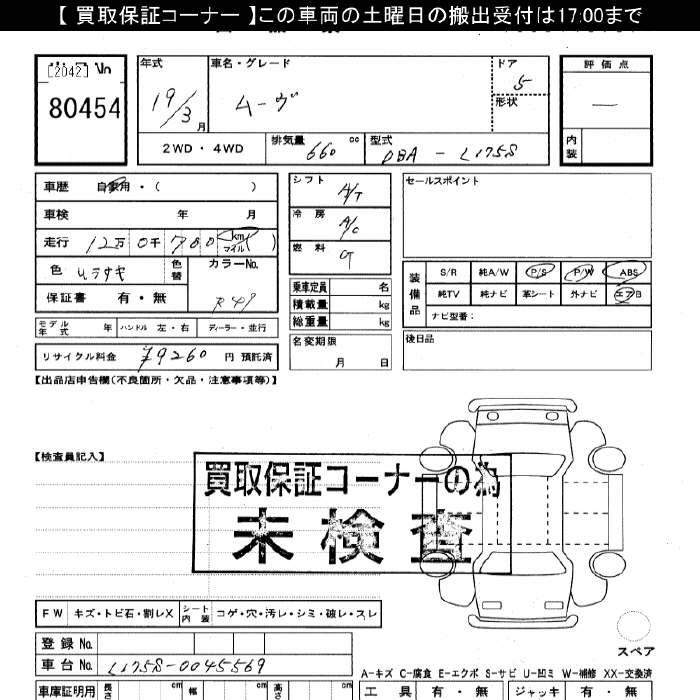 【 買取保証コーナー 】この車両の土曜日の搬出受付は17:00まで
[2042] No
80454
年式 19/3 月
車名・グレード ムーヴ
ドア 5
形状
評価点 —
内装
2WD・4WD
排気量 660 cc
型式 DBA - L175S
車歴 自家用・( )
車検 年 月
走行 12万 0千 780 (km マイル)
色 ムラサキ 色替
カラーNo.
保証書 有・無
モデル年式 年 ハンドル 左・右 ディーラー・並行
リサイクル料金 ¥9260 円 預託済
シフト A/T
冷房 A/C
燃料
乗車定員 名
積載量 kg
総重量 kg
名変期限 月 日
セールスポイント
装備品
S/R 純A/W P/S P/W ABS
純TV 純ナビ 革シート 外ナビ エアB
ナビ型番:
後日品
【出品店申告欄(不良箇所・欠品・注意事項等)】
【検査員記入】
買取保証コーナーの為
未検査
FW キズ・トビ石・割レX シート内装 コゲ・穴・汚レ・シミ・破レ・スレ
登録No.
車台No. L175S-0045569
スペア
A−キズ C−腐食 E−エクボ S−サビ U−凹ミ W−補修 XX−交換済
車庫証明用 長さ cm 幅 cm 高さ cm
工具 有・無 ジャッキ 有・無